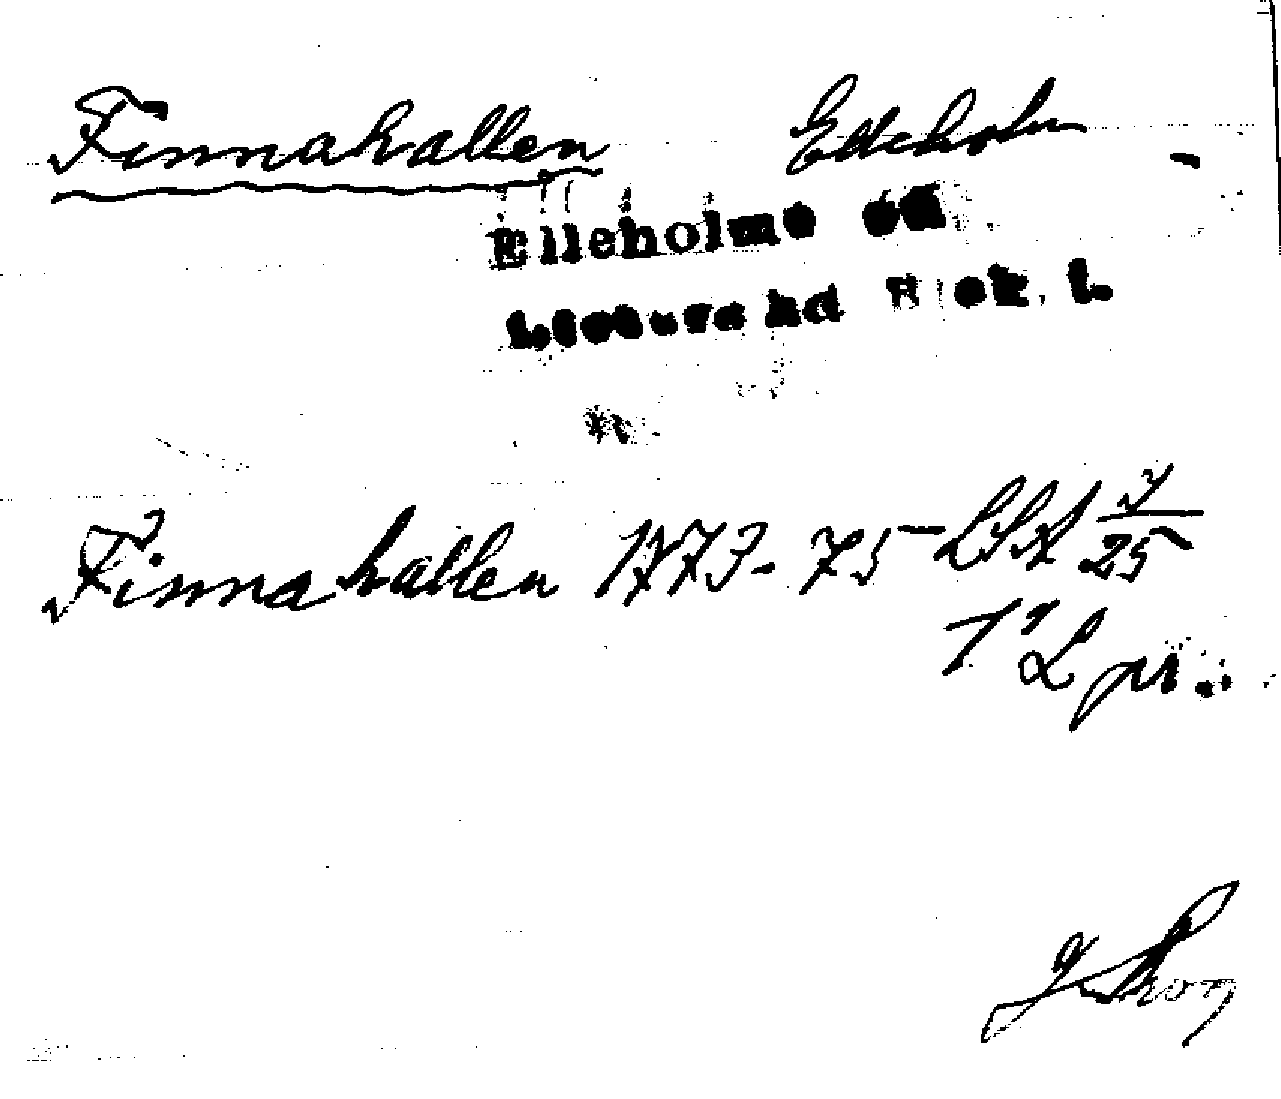 Finnahallen Elleholm
Elleholms sn
Listers hd Blek. l.
Finnahallen 1773-75 LSA
25